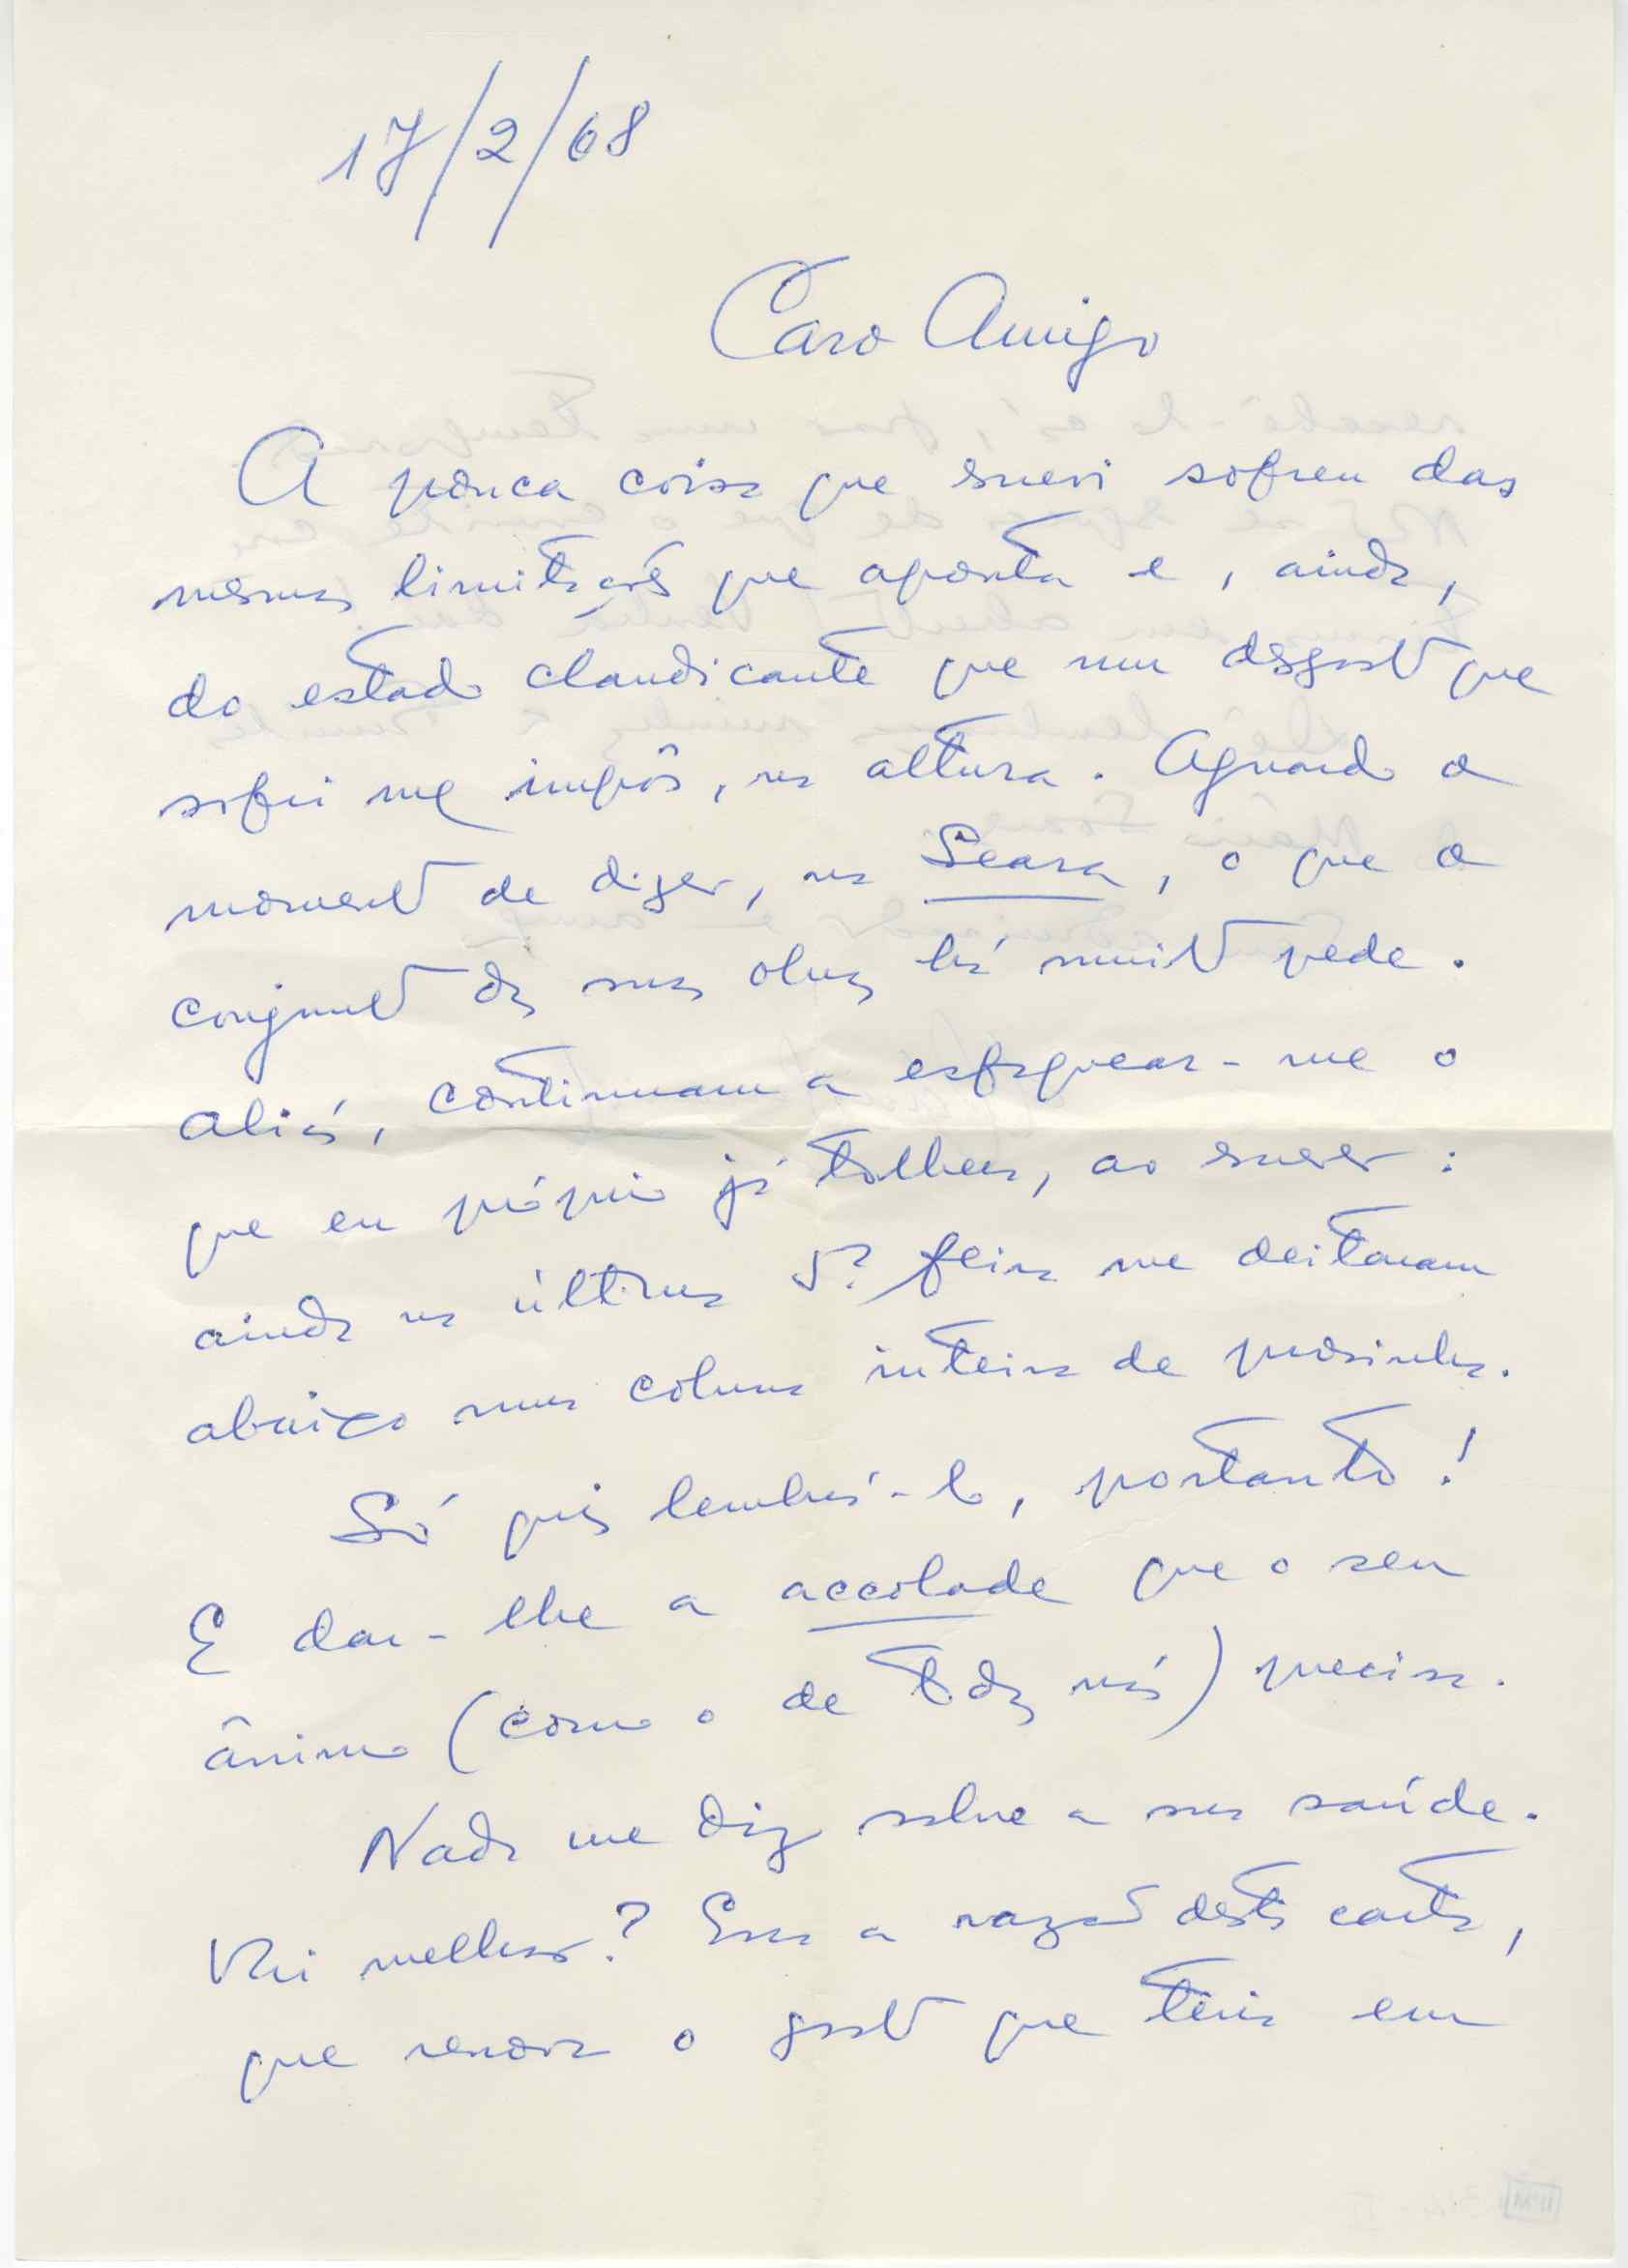 17/2/68
Caro Amigo
A pouca coisa que escrevi sofreu das
mesmas limitações que aponta e, ainda,
do estado claudicante que um desgosto que
sofri me impôs, na altura. Aguardo o
momento de dizer, na Seara, o que o
conjunto das suas obras há muito pede.
Aliás, continuam a esfaquear-me o
que eu próprio já tolhera, ao escrever:
ainda na última 5ª feira me deitaram
abaixo uma coluna inteira de prosinha.
Só quis lembrá-lo, portanto!
E dar-lhe a accolade que o seu
ânimo (como o de todos nós) precisa.
Nada me diz sobre a sua saúde.
Vai melhor? Era a razão desta carta,
que renova o gosto que teria em